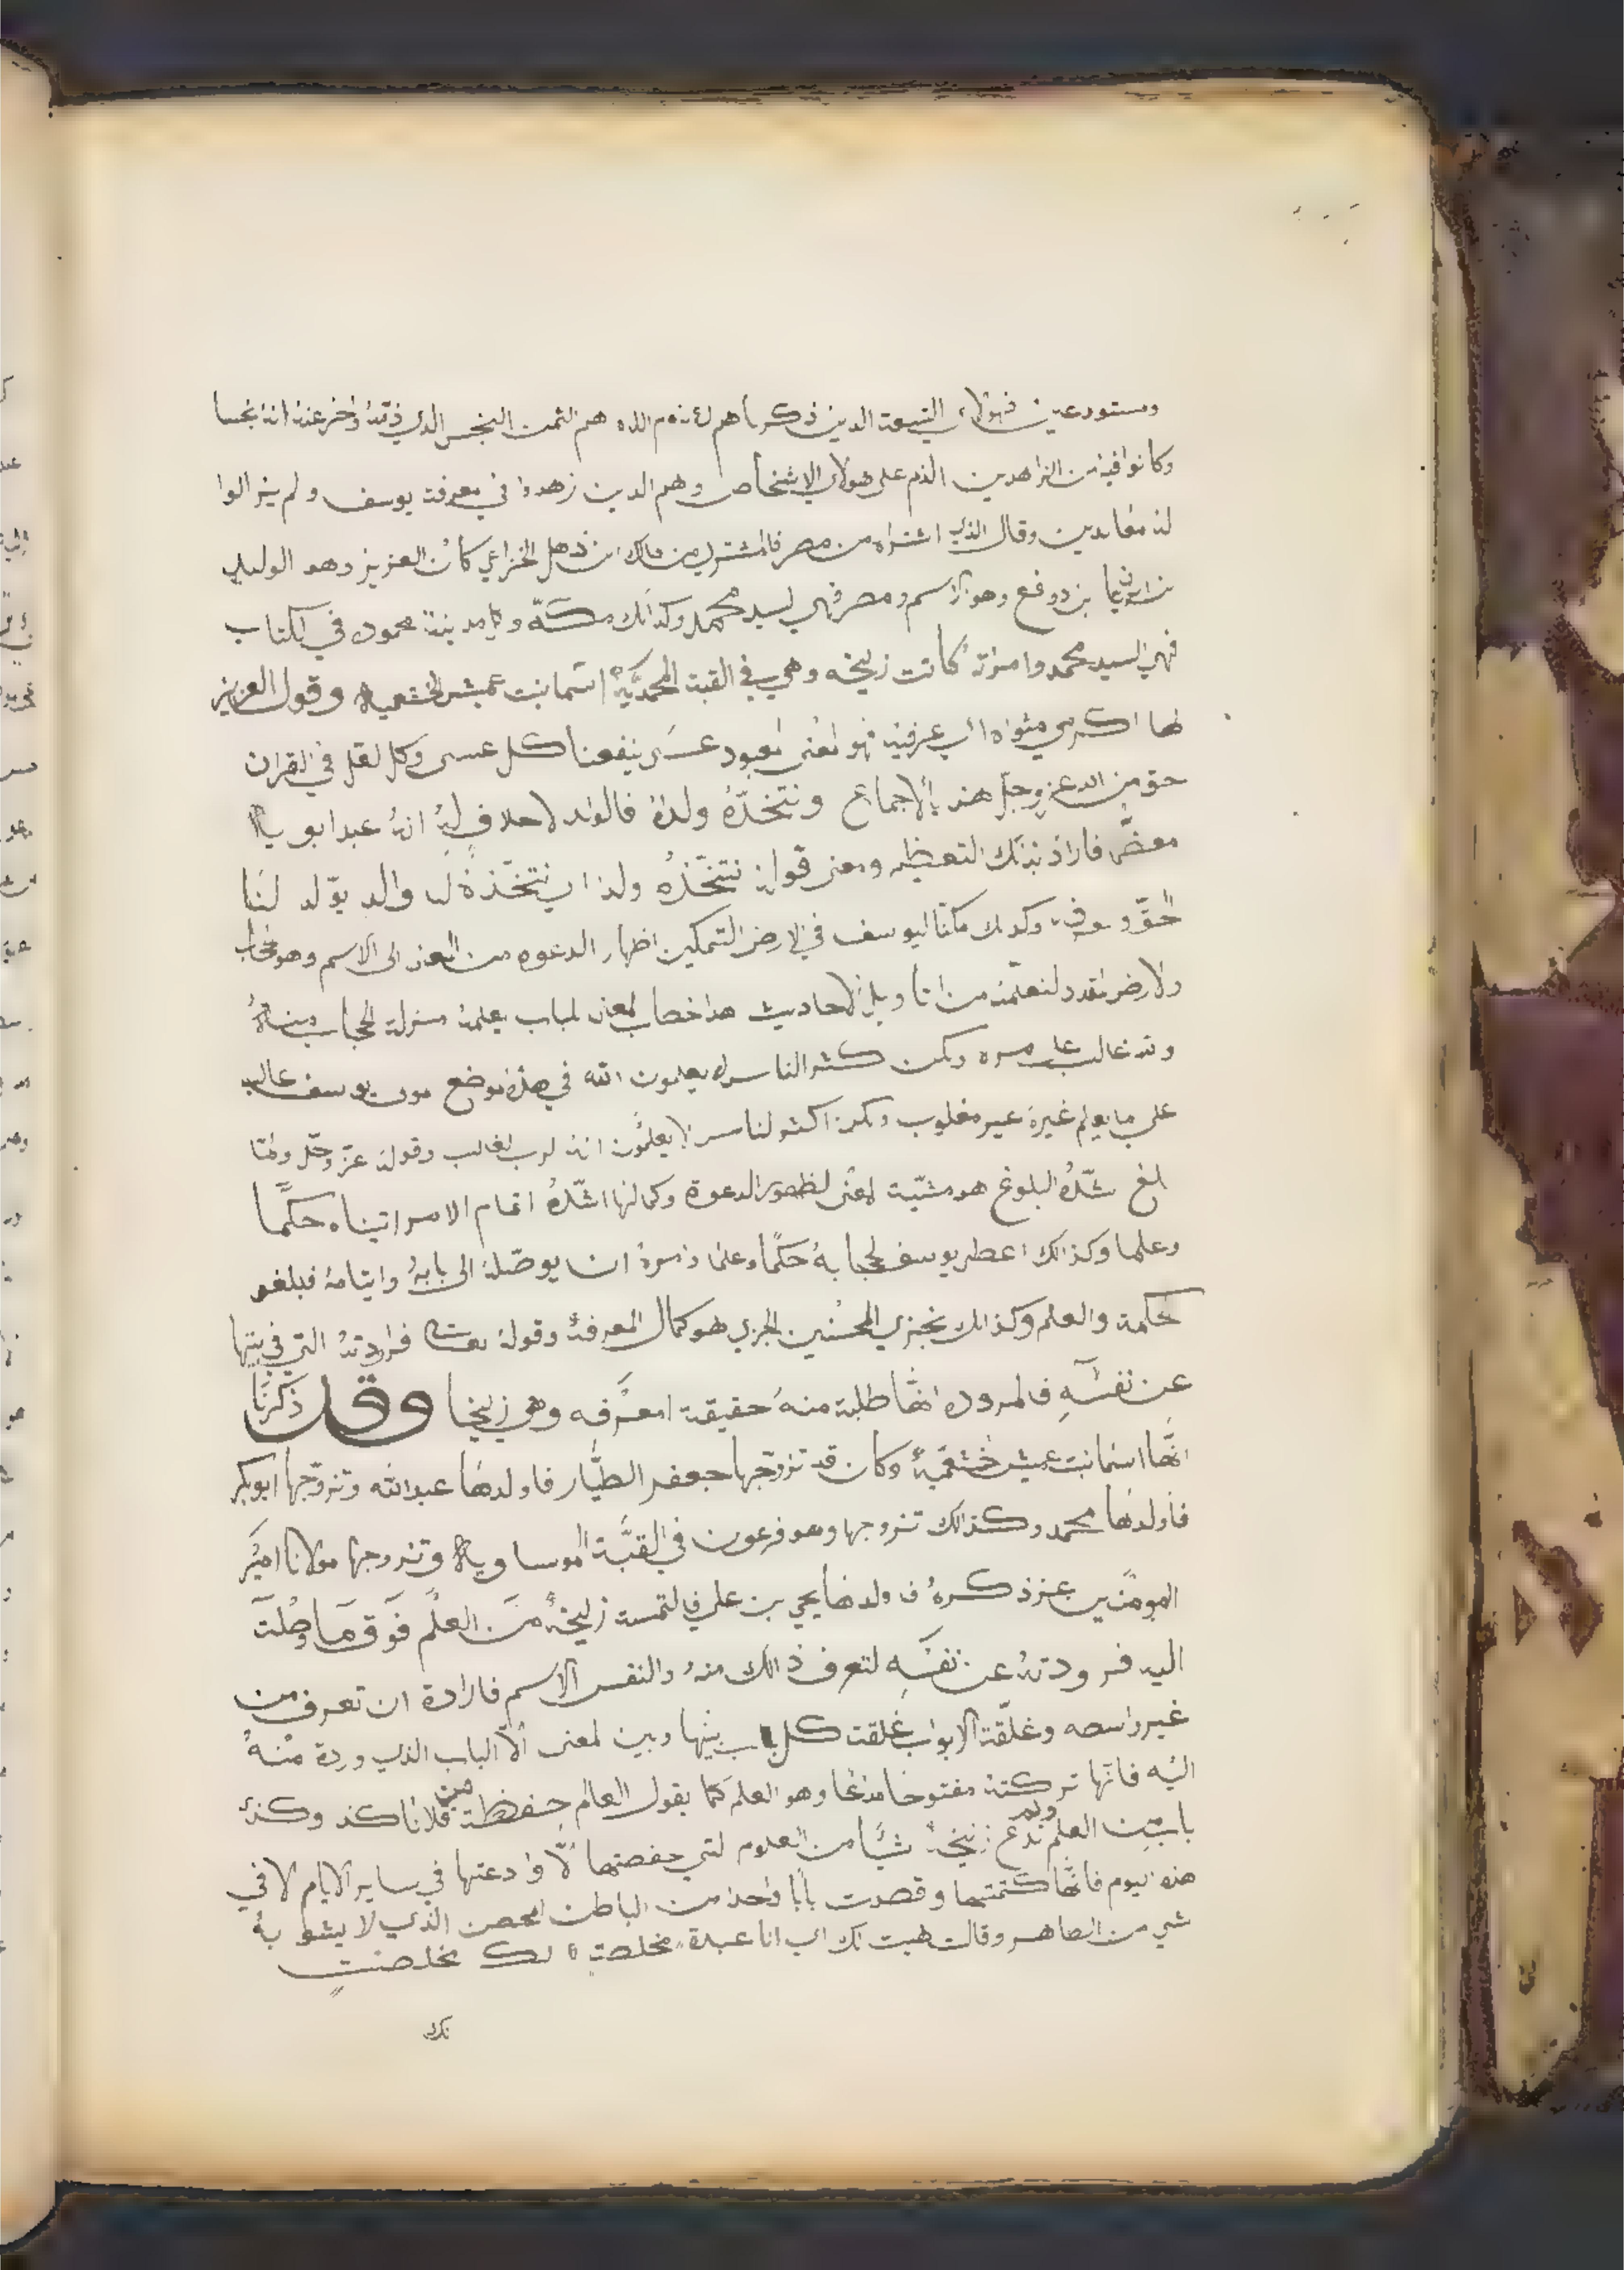 ومستودعين فهولاي التسعة الدين ذكرناهم هم الثمن البخس الدي
وكانوا فيه من الزاهدين الذم على هولاي الاشخاص وهم الدين زهدوا في معرفت يوسف ولم يزالوا
له معاندين وقال الذي اشتراه من مصر فالمشتري من مالك ابن ذهل الخزاعي كان العزيز وهو الوليد
بن دوفع وهو الاسم ومصر فهي لسيد محمد وكذالك مكة وكل مدينة محمود في لكتاب
فهي السيد محمد وامرته كانت زليخه وهي في القبة المحمدية اسما بنت عميس الخثعمياه وقول العزيز
لها اكرمي مثواه اي عرفيه فهو لمعنى لمعبود عسى ينفعنا كل عسى وكل لعل في القران
حق من الله عز وجل هذه بالاجماع ونتخذه ولدا فالولد لا خلاف فيه انه عبد ابو ياه
معضم فاراد بذلك التعظيم ومعنى قوله نتخذه ولدا اي نتخذه ل والد يولد لنا
الحق وكدلك مكنا ليوسف في الارض التمكين اظهار الدعوه من المعنى الى الاسم وهو
ولارض لنعلمه من تاويل الاحاديث هذا خصاب لمعنى لباب يعلمه منزلة الحجاب
غالب على امره ولكن كثر الناس لا يعلمون الله في هذه لموضع يوسف غالب
على ما يعلم غيره غير مغلوب ولكن اكثر لناس لا يعلمون انه لرب لغالب وقوله عز وجل ولما
بلغ شده البلوغ هو مشية لمعنى لظهور الدعوة وكمالها اشده اتمام الامر اتيناه حكما
وعلما وكذالك اعطى يوسف لحجابه حكما وعلما وامره ان يوصله الى بابه وايتامه فبلغو
حكمة والعلم وكذالك نجزي المحسنين الجزي هو كمال المعرفة وقوله فراودته التي في بيتها
عن نفسه فالمرودة انها طلبة منه حقيقة امعرفه وهي زليخا وقد ذكرنا
انها اسما بنت عميس خثعمية وكان قد تزوجها جعفر الطيار فاولدها عبد الله وتزوجها ابو بكر
فاولدها محمد وكذالك تزوجها وهو فرعون في القبة الموساوياه وتزوجها مولانا امير
المومنين عز ذكره ف ولدها يحي بن علي فالتمسة زليخة من العلم فوق ما وصلت
اليه فرودته عن نفسه لتعرف ذالك منه والنفس الاسم فارادة ان تعرف من
غير واسصه وغلقت الابواب غلقت كل باب بينها وبين لمعنى الا الباب الذي وردة منه
اليه فانها تركته مفتوحا وهو العلم كما يقول العالم حفظت من فلانا كذ وكذ
باب من العلم ولم تدع زليخة شيا من العلوم لتي حفصتها الا وادعتها في ساير الايام لا في
هذه ليوم فانها كتمتها وقصدت بابا واحدا من الباطن المحصن الذي لا يشوبه
شي من الضاهر وقالت هيت لك اي انا عبدة مخلصة لك مخلصت
لك